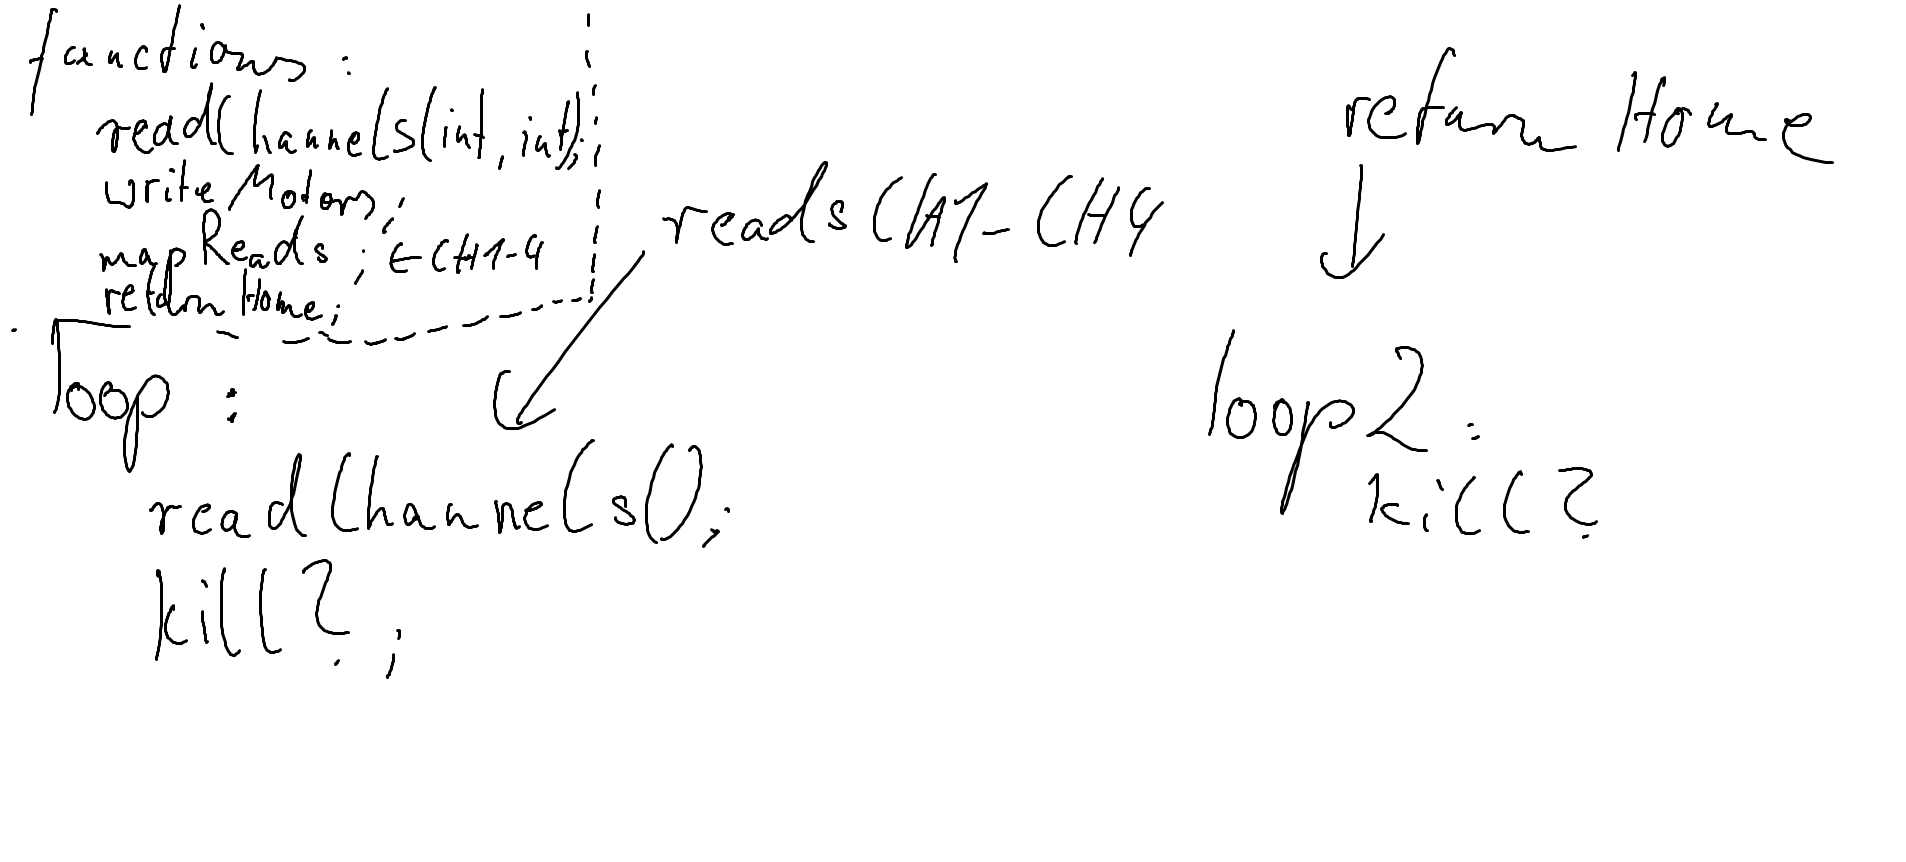 functions :
readChannels(int, int);
writeMotors;
mapReads ; ← CH1-4
return Home;
reads CH1-CH4
loop :
readChannels();
kill? ;
return Home
loop2 :
kill?